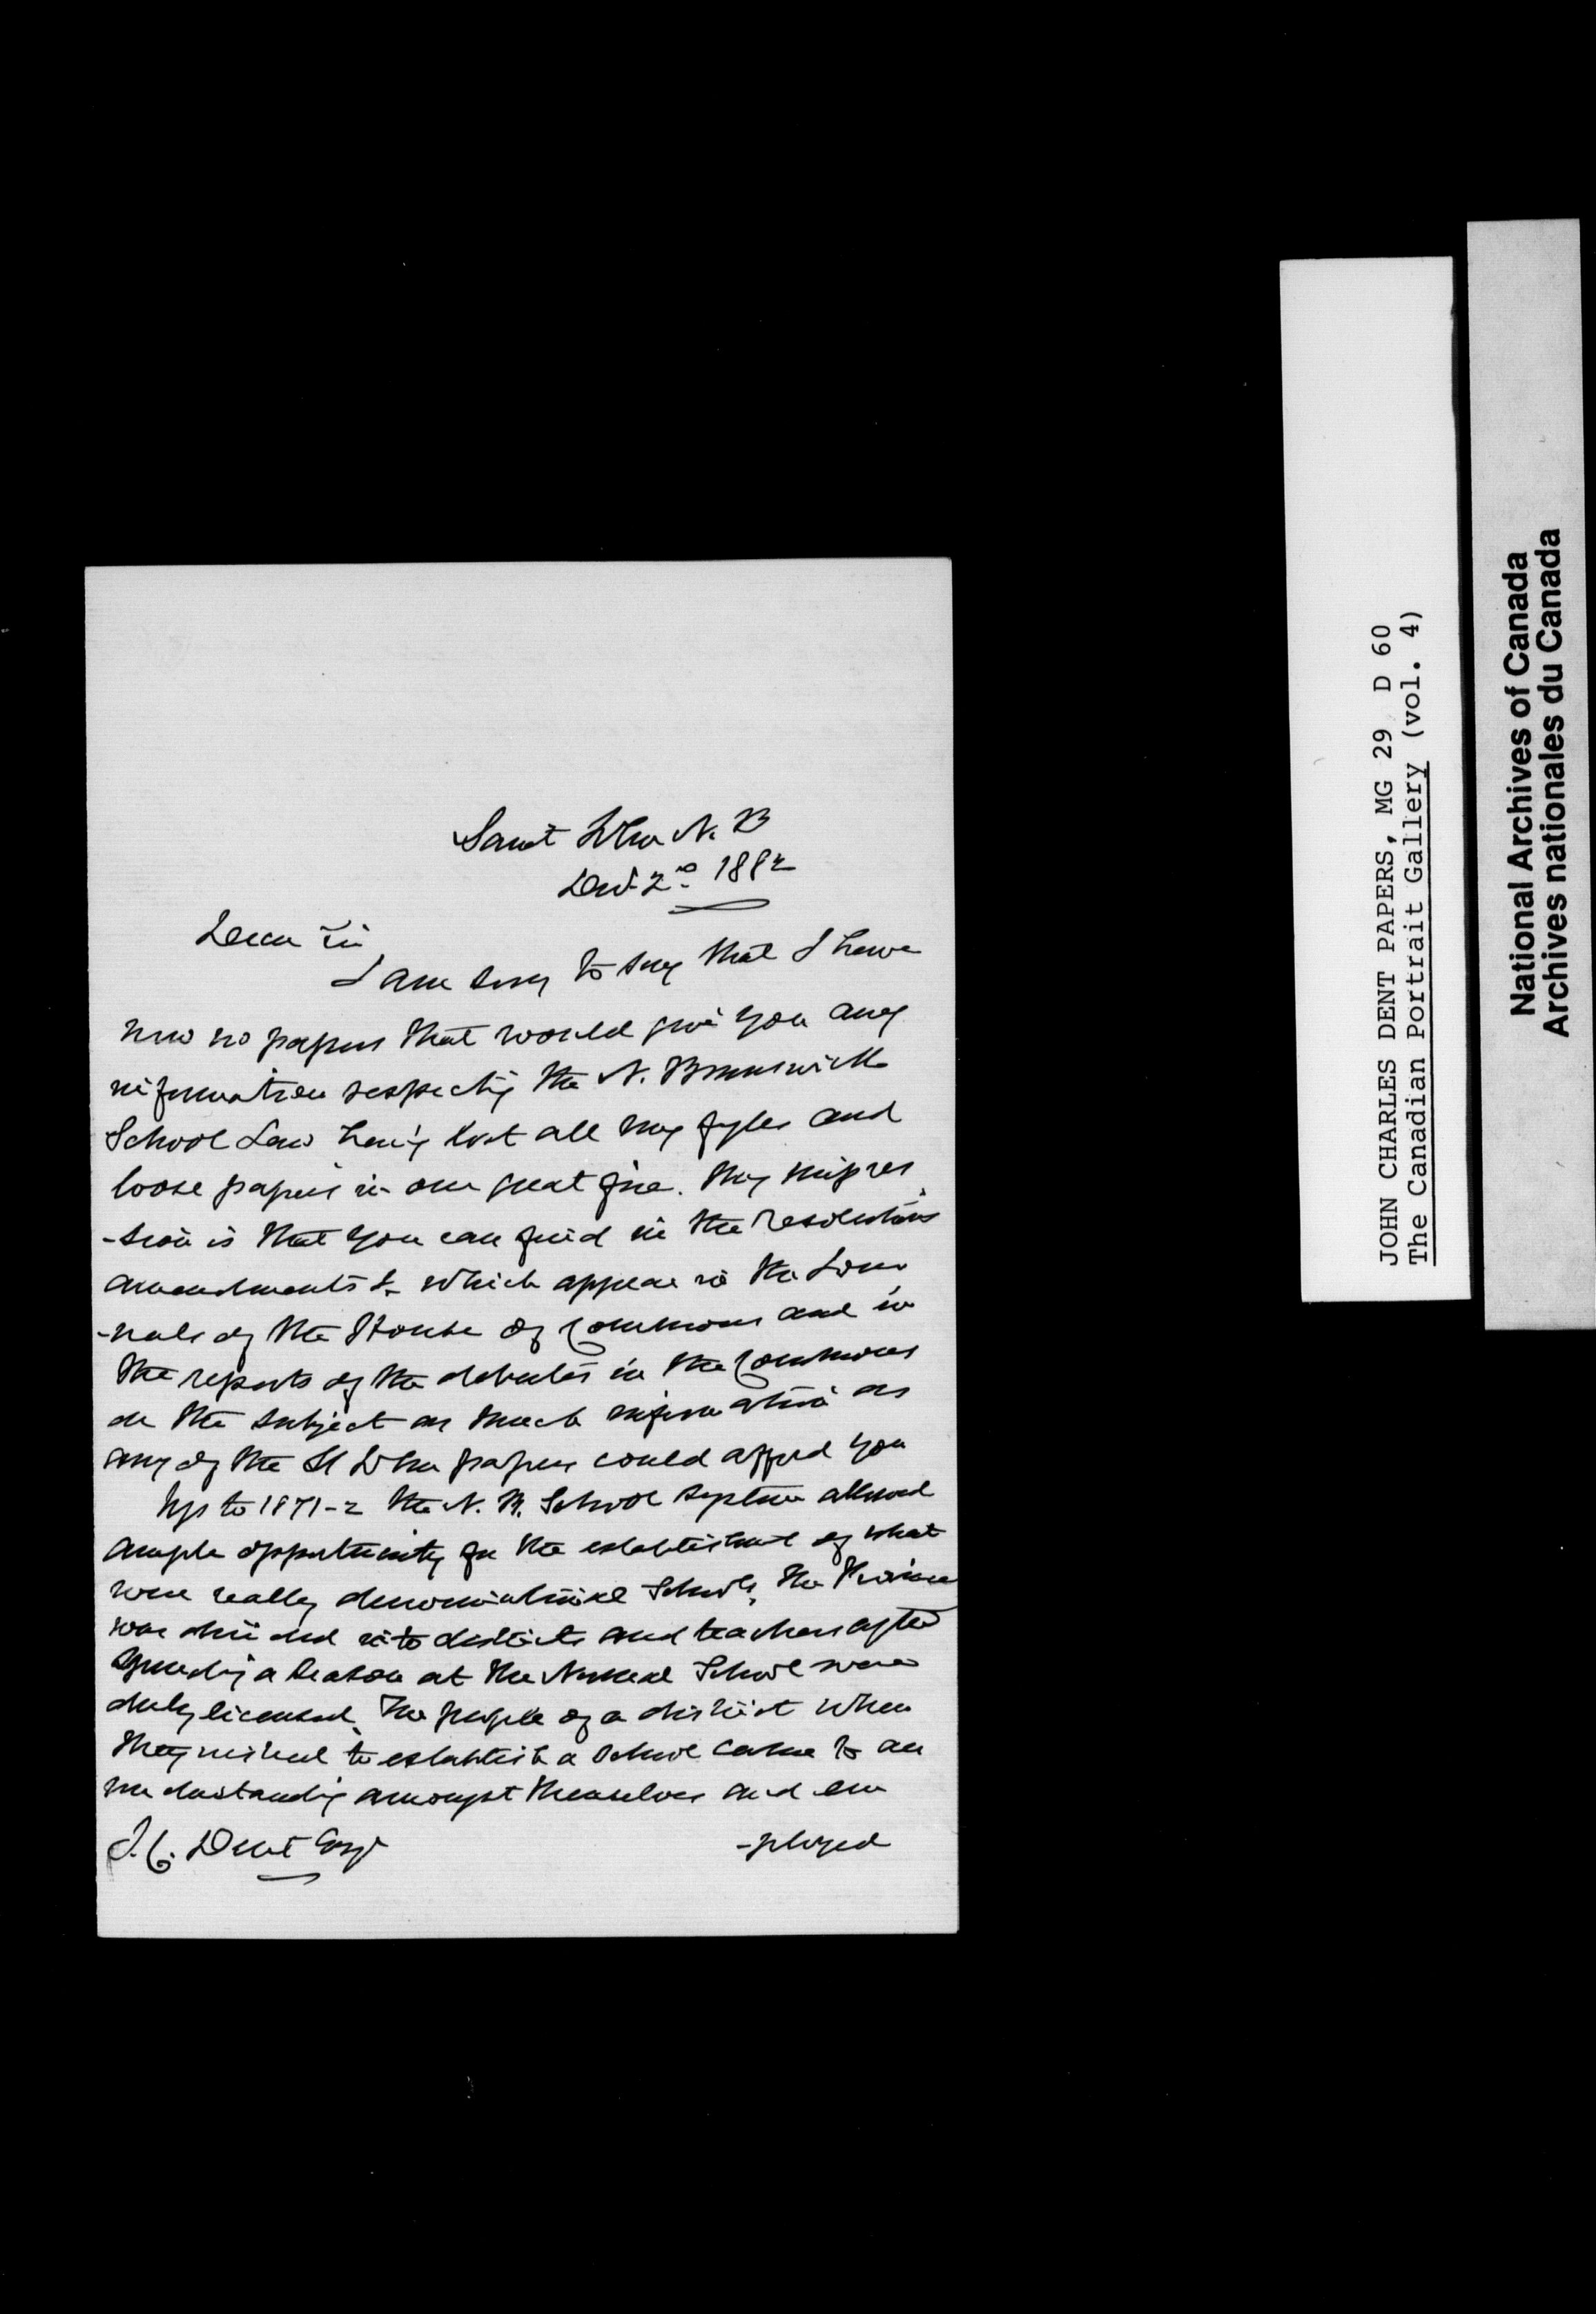 Saint John N. B
Dec 2nd 1882
Dear Sir
I am sorry to say that I have
now no papers that would give you any
information respecting the N. Brunswick
School Law having lost all my fyles and
loose papers in our great fire. My impres
-sion is that you can find in the resolutions
amendments &c which appear in the Jour
-nals of the House of Commons and in
the reports of the debates in the Commons
on the subject as much information as
any of the St John papers could afford you
Up to 1871-2 the N. B. School System allowed
ample opportunity for the establishment of what
were really denominational Schools. The Province
was divided into districts and teachers after
spending a season at the Normal School were
duly licensed. The people of a district when
they wished to establish a School came to an
understanding amongst themselves and em
-ployed
J. C. Dent Esqr
JOHN CHARLES DENT PAPERS, MG 29 D 60
The Canadian Portrait Gallery (vol. 4)
National Archives of Canada
Archives nationales du Canada